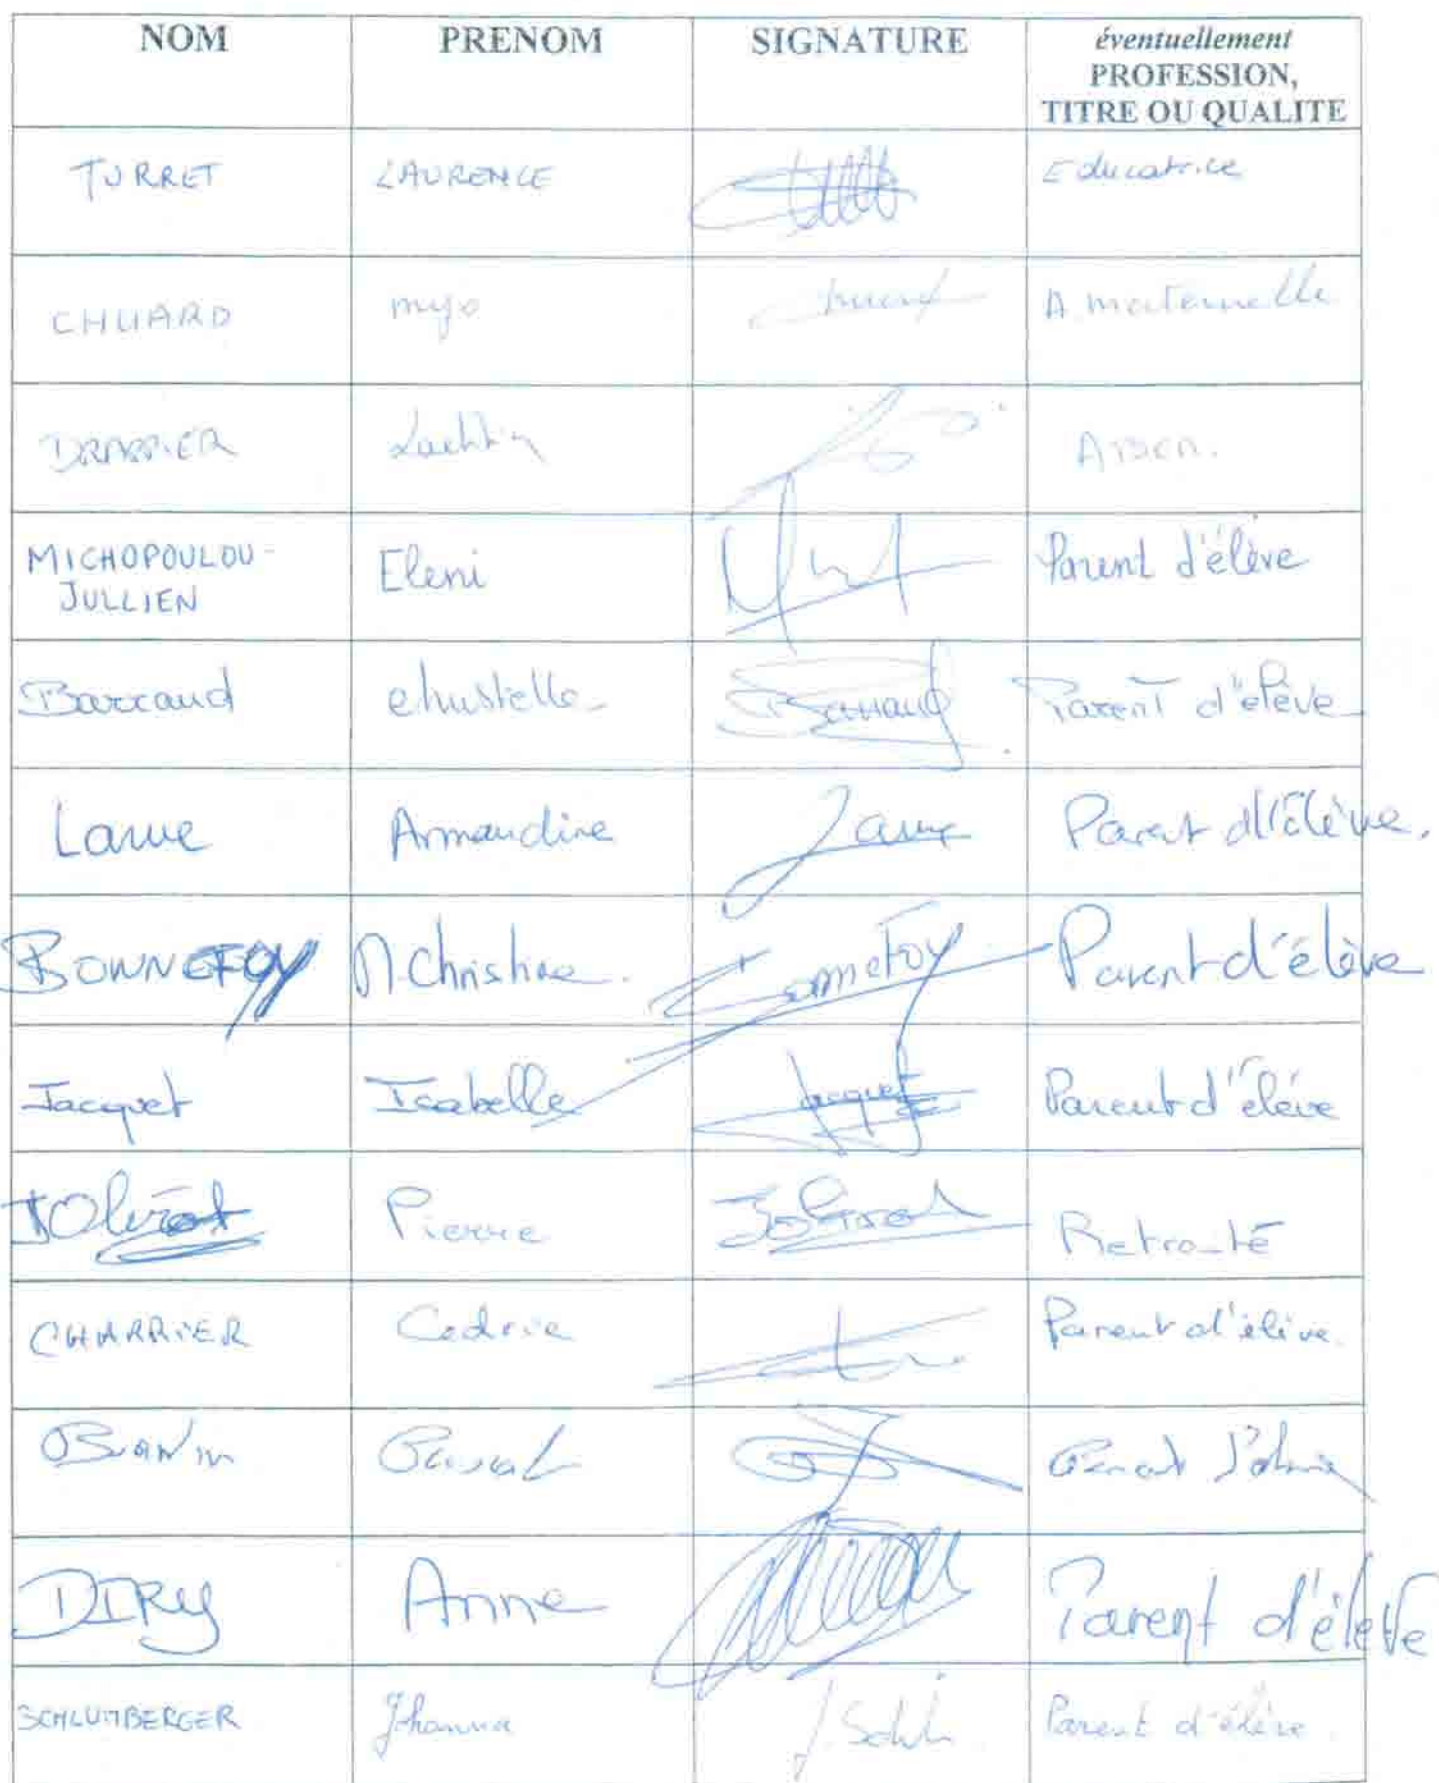 NOM PRENOM SIGNATURE éventuellement
PROFESSION,
TITRE OU QUALITE
TURRET LAURENCE Educatrice
CHUARD myo A. maternelle
DRAPPIER Laetitia Atsem.
MICHOPOULOU-
JULLIEN Eleni Parent d'élève
Barraud christelle Barraud Parent d'élève
Larue Armandine Larue Parent d'élève.
BONNEFOY M.Christine. Bonnefoy Parent d'élève
Jacquet Isabelle Jacquet Parent d'élève
Pierre Retraité
CHARRIER Cedric Parent d'élève.
Pascal
DIRY Anne Parent d'élève
SCHLUMBERGER Johanna J. Schl Parent d'élève.